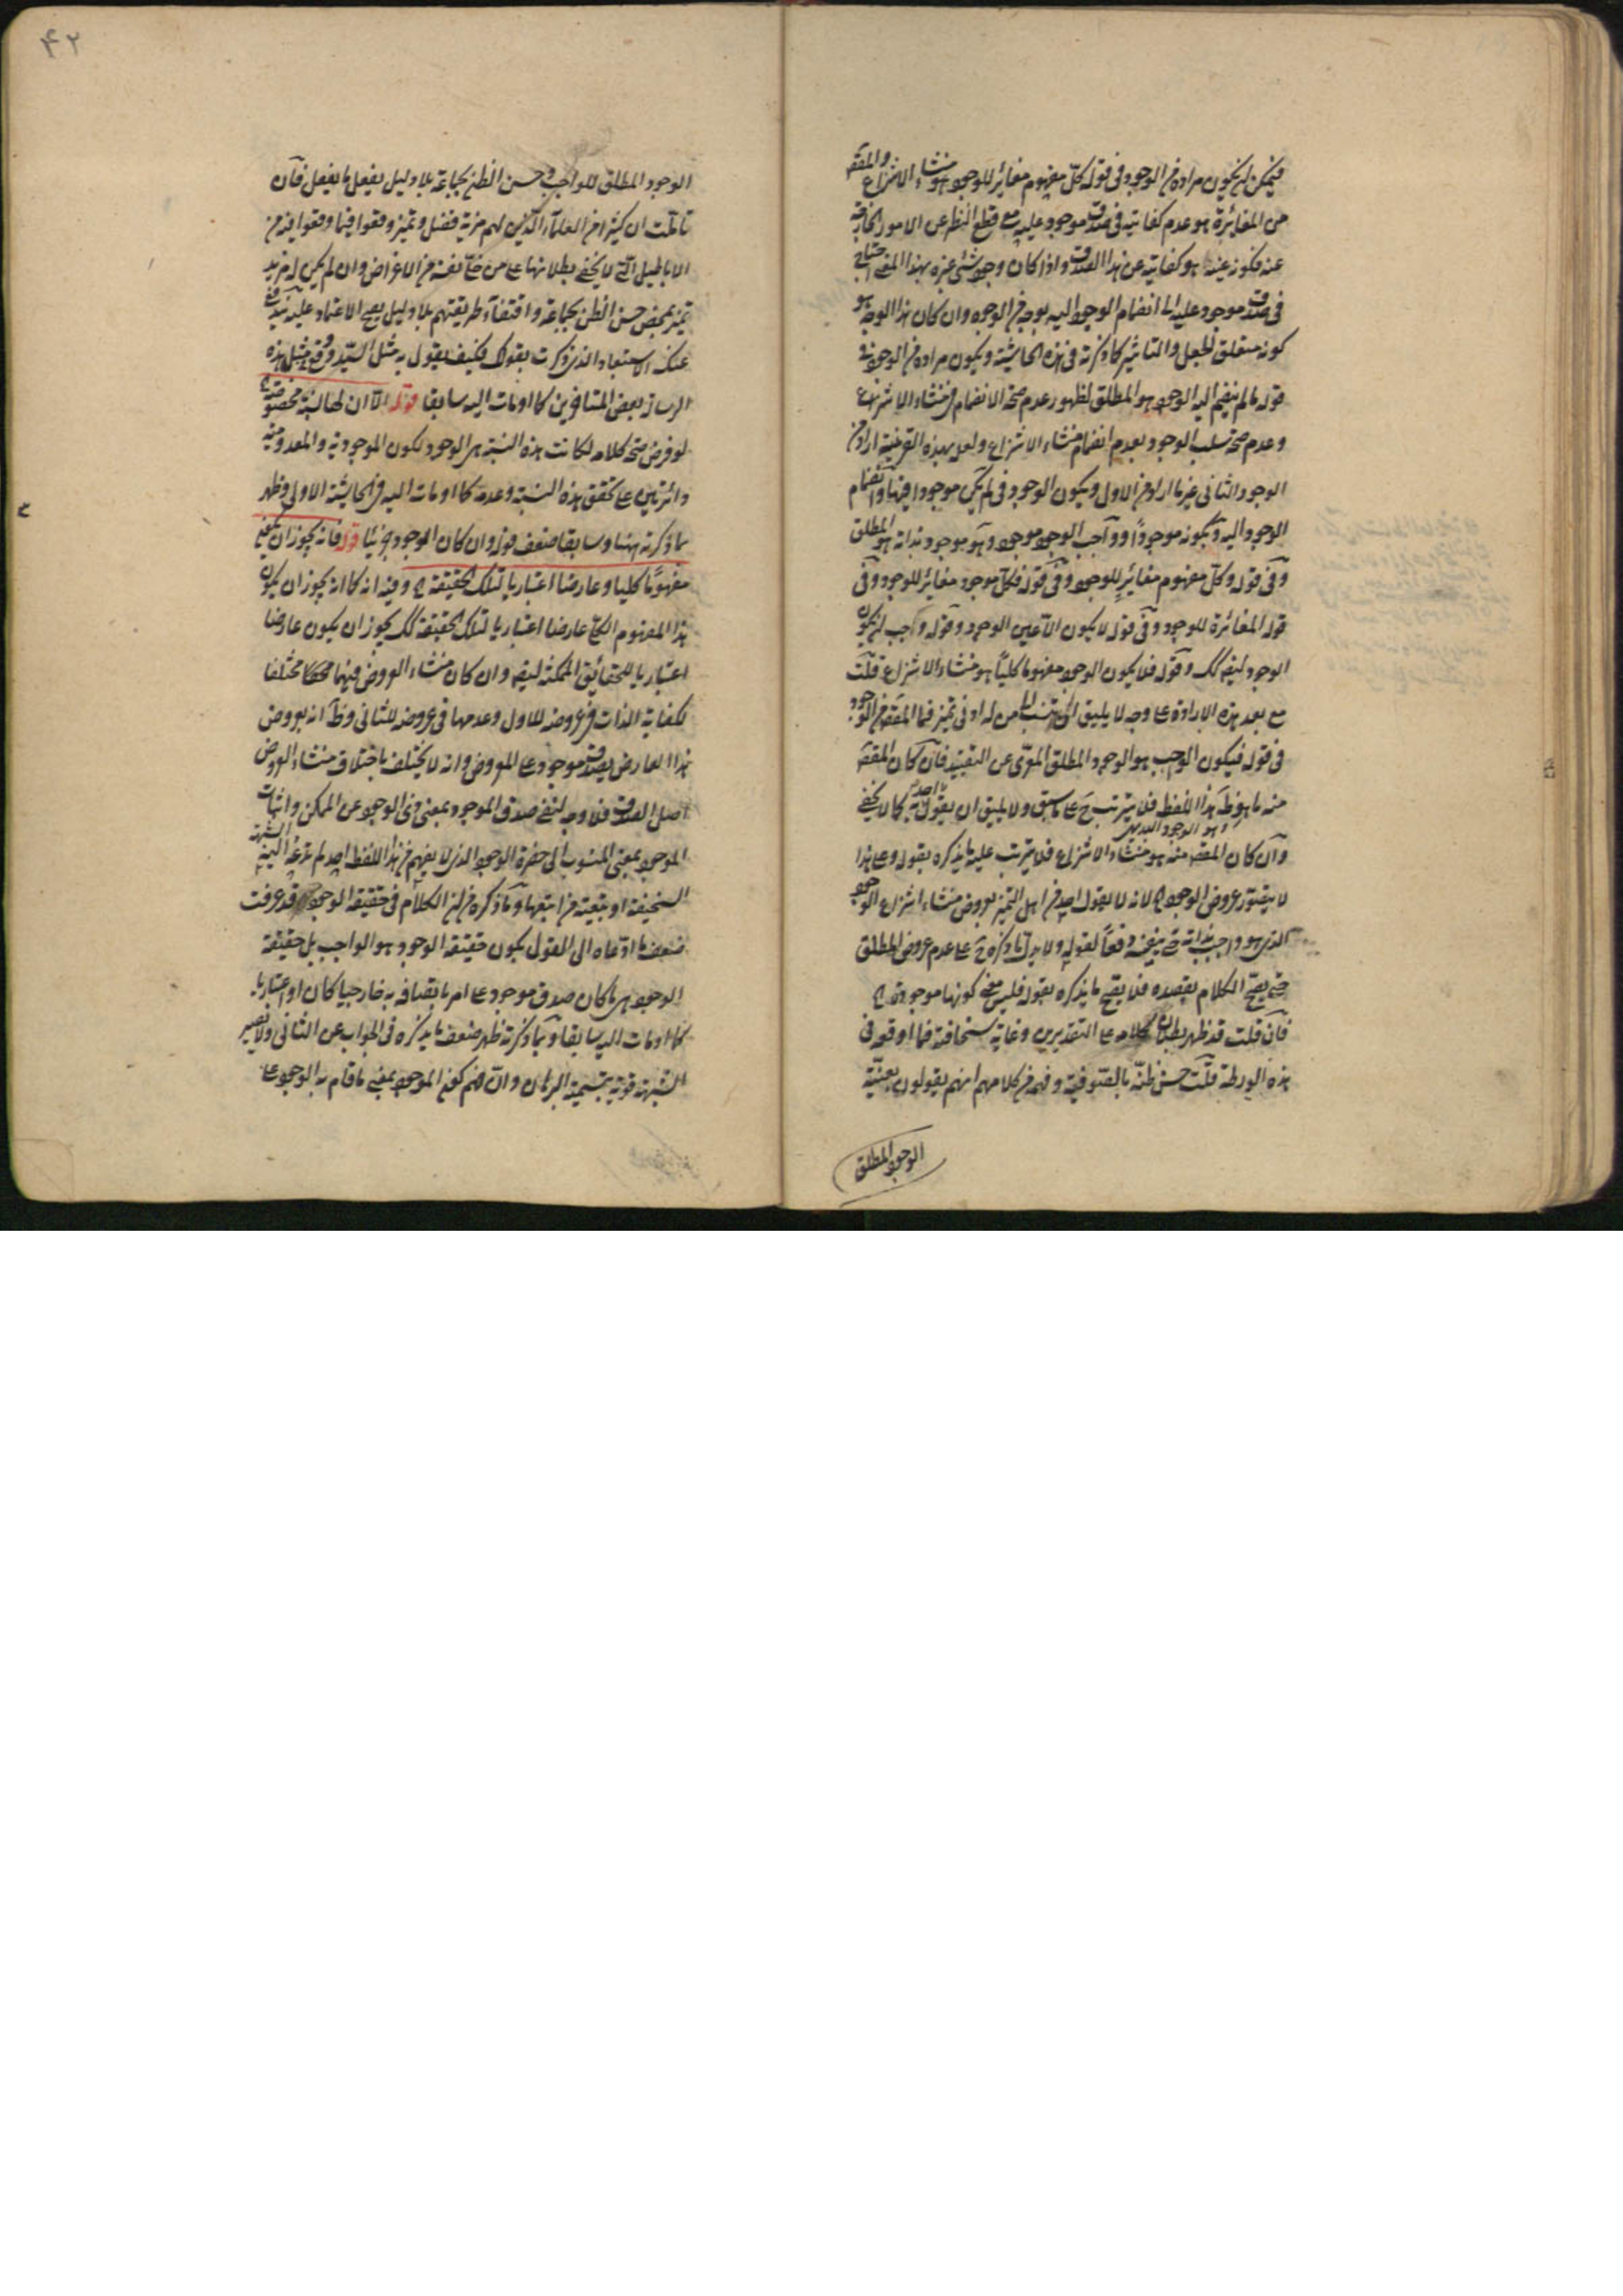 فيمكن ان يكون مراده من الوجود فى قوله كلّ مفهوم مغائر للوجود هو منشاء الانتزاع والمقصّه
من المغائرة هو عدم كفايته فى صدق موجود عليه مع قطع النظر عن الامور الخارجة
عنه فكونه عينه هو كفايته عن هذا الصدق واذا كان وجود شئ غيره بهذا المعنى احتاج
فى صدق موجود عليه الى انضمام الوجود اليه بوجه من الوجوه وان كان هذا الوجه هو
كونه متعلق الجعل والتاثير كما ذكرته فى هذه الحاشية ويكون مراده من الوجود فى
قوله ما لم ينضم اليه الوجود هو المطلق لظهور عدم صحة الانضمام من منشاء الانتزاع
وعدم صحة سلب الوجود بعدم انضمام منشاء الانتزاع ولعله بهذه القرينة اراد من
الوجود الثانى غير ما اراد من الاول ويكون الوجود فى لم يكن موجودا فيهما وانضمام
الوجود اليه وبكونه موجوداً وواجب الوجود موجود وهو موجود بذاته هو المطلق
وفى قوله وكلّ مفهوم مغائر للوجود وفى قوله فكلّ موجود مغائر للوجود وفى
قوله المغائرة للوجود وفى قوله لا يكون الا عين الوجود وقوله واجب ان يكون
الوجود ايضه كك وقوله فلا يكون الوجود مفهوما كلياً هو منشاء الانتزاع قلت
مع بعد هذه الارادة على وجه لا يليق ان ينسب الى من له ادنى تميز فما المقصه من الوجود
فى قوله فيكون الواجب هو الوجود المطلق المعرّى عن التقييد فان كان المقصه
منه ما هو ظ هذا اللفظ فلا يترتب ح على ما سبق ولا يليق ان يقول به احد كما لا يخفى
وهو الوجود البديهى
وان كان المقصه منه هو منشاء الانتزاع فلا يترتب عليه ما يذكره بقوله وعلى هذا
لا يتصور عروض الوجود ح لانه لا يقول احد من اهل التميز بعروض منشاء انتزاع الوجود
الذى هو واجب بذاته حتى ينفيه دفعاً لقوله ولا يدل ما ذكره ح على عدم عروض المطلق
حتى يصح الكلام بقصده فلا يصح ما يذكره بقوله فليس معنى كونها موجودة ح
فان قلت قد ظهر بطلان كلامه على التقديرين وغاية سخافته فما اوقعه فى
هذه الورطة قلت حسن ظنّه بالصّوفية وفهمه من كلامهم انهم يقولون بعينية
الوجود المطلق
۴۲
الوجود المطلق للواجب وحسن الظن بجماعة بلا دليل يفعل ما يفعل فان
تاملت ان كثيرا من العلماء الذين لهم مزية فضل وتميز وقعوا فيما وقعوا فيه من
الاباطيل التى لا يخفى بطلانها على من خلّى نفسه من الاغراض وان لم يكن له مزيد
تميز بمحض حسن الظن بجماعة واقتفاء طريقتهم بلا دليل يصح الاعتماد عليه يندفع
عنك الاستبعاد الذى ذكرت بقولك فكيف يقول به مثل السيد وقد وقع مثل هذه
الرسالة بعض المتاخرين كما اومات اليه سابقا قوله الا ان لها نسبة مخصوصة ح
لو فرض صحة كلامه لكانت هذه النسبة هى الوجود لكون الموجودية والمعدومية
دائرتين على تحقق هذه النسبة وعدمه كما اومات اليه فى الحاشية الاولى وظهر
بما ذكرته ههنا وسابقا ضعف قوله وان كان الوجود جزئيا قوله فانه يجوز ان يكون
مفهوما كليا وعارضا اعتباريا لتلك الحقيقة ح وفيه انه كما انه يجوز ان يكون
هذا المفهوم الكلى عارضا اعتباريا لتلك الحقيقة كك يجوز ان يكون عارضا
اعتباريا للحقائق الممكنة ايضه وان كان منشاء العروض فيهما مختلفا
لكفاية الذات فى عروضه للاول وعدمها فى عروضه للثانى وظ انه بعروض
هذا العارض يصدق موجود على المعروض وانه لا يختلف باختلاف منشاء العروض
اصل الصدق فلا وجه لنفى صدق الموجود بمعنى ذى الوجود عن الممكن واثبات
الموجود بمعنى المنسوب الى حضرة الوجود الذى لا يفهم من هذا اللفظ احد لم تدعه الشبهة
السخيفة او تبعية من اتبعها وما ذكره من ان الكلام فى حقيقة الوجود قد عرفت
ضعف ما ادعاه الى القول بكون حقيقة الوجود هو الواجب بل حقيقة
الوجود هى ما كان صدق موجود على امر باتصافه به خارجيا كان او اعتباريا
كما اومات اليه سابقا وبما ذكرته ظهر ضعف ما يذكره فى الجواب عن الثانى ولا يصير
الشبهة قوية بتسمية البرهان وان ضم كون الموجود بمعنى ما قام به الوجود على